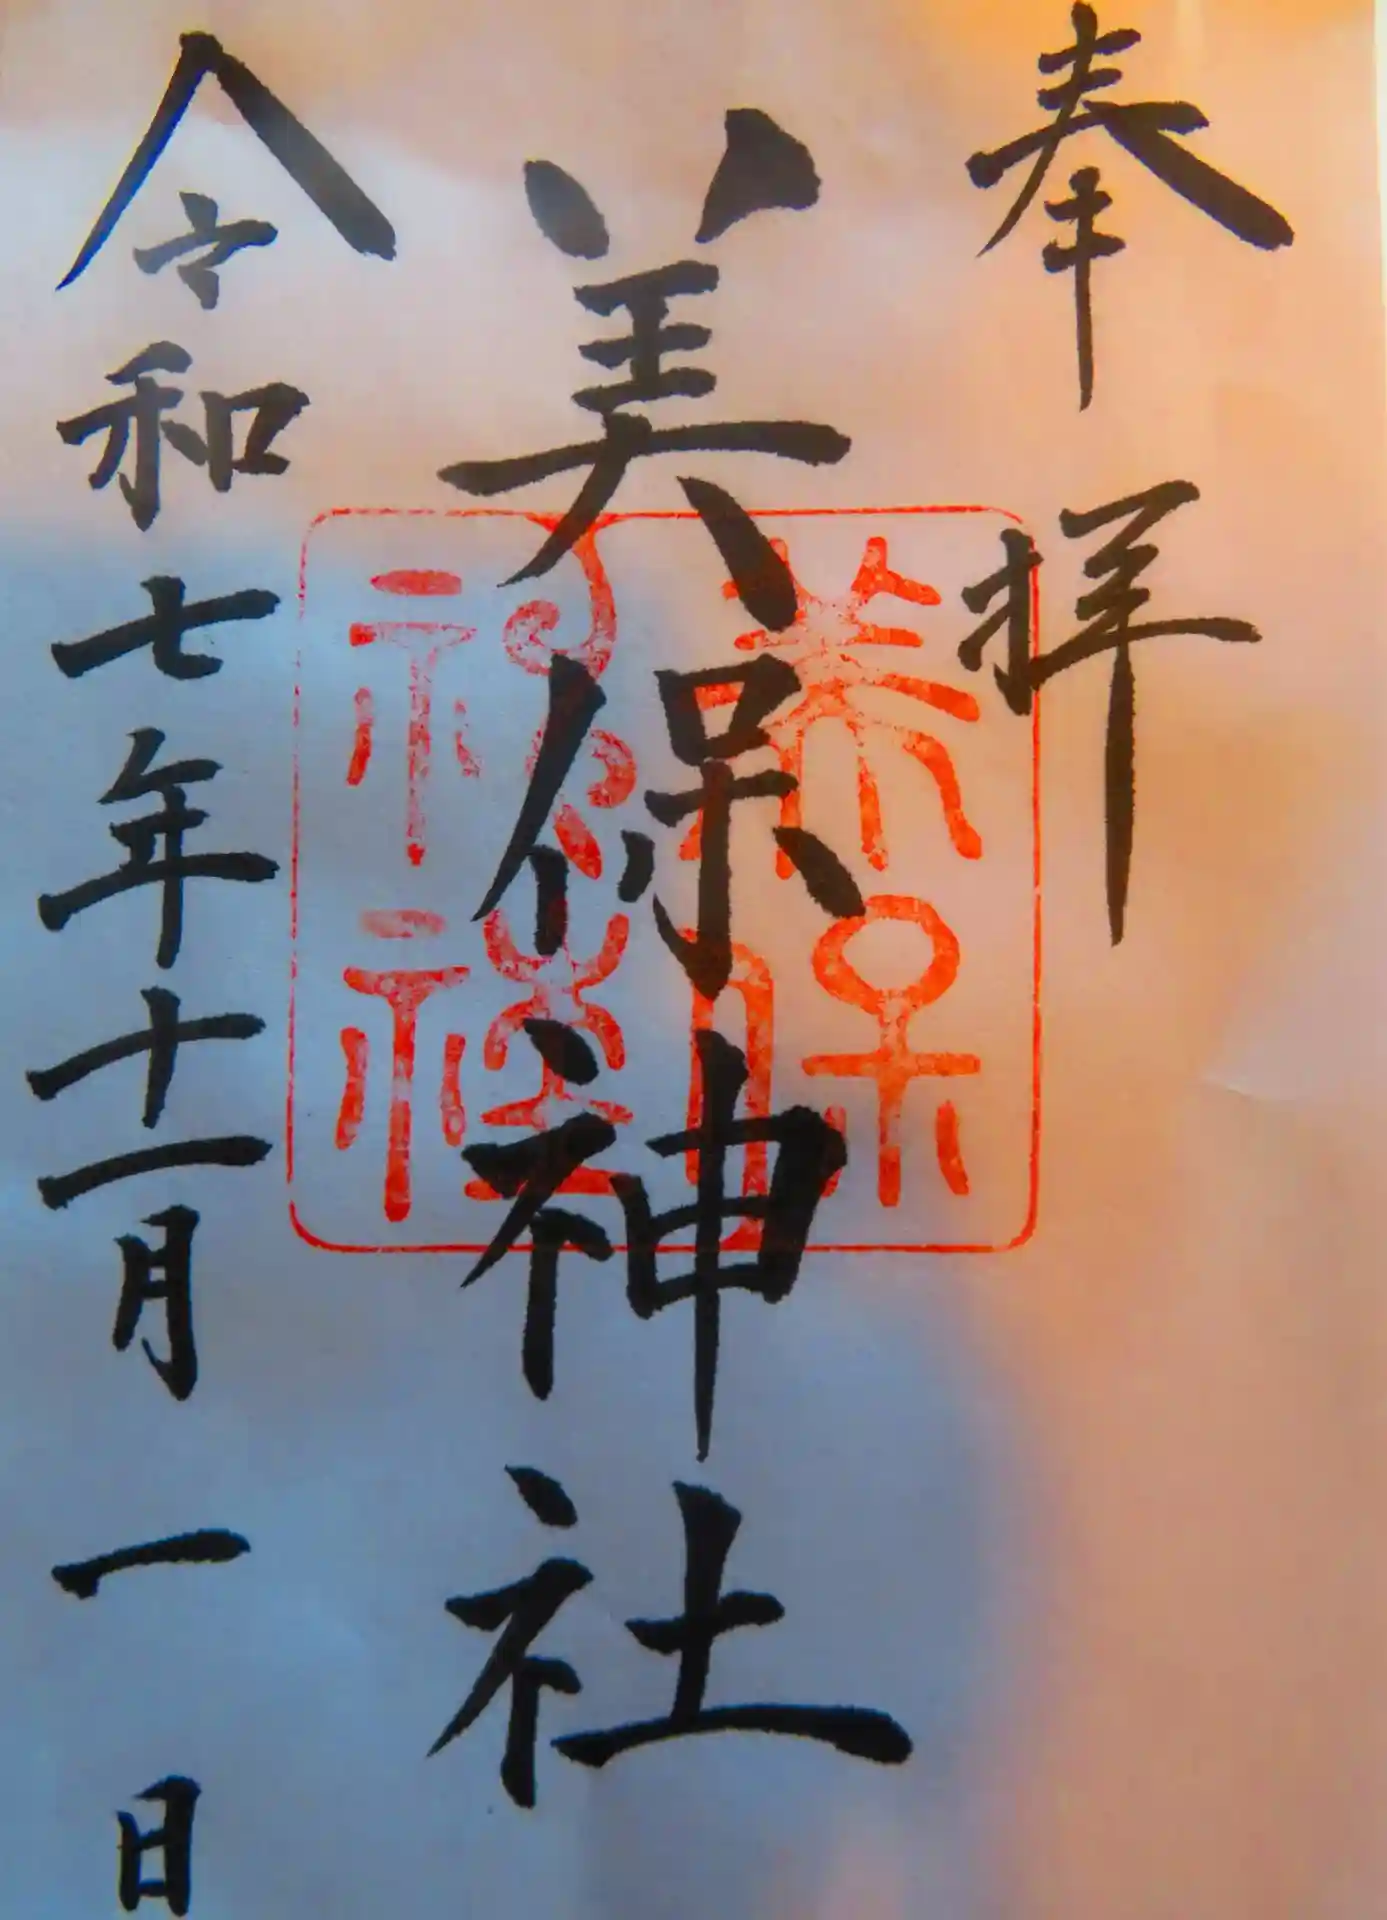 奉拝
美保神社
美保
神社
令和七年十一月一日